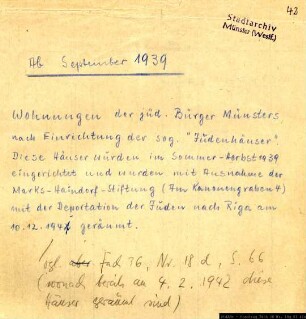 42
Stadtarchiv
Münster (Westf.)
Ab September 1939
Wohnungen der jüd. Bürger Münsters
nach Einrichtung der sog. "Judenhäuser".
Diese Häuser wurden im Sommer-Herbst 1939
eingerichtet und wurden mit Ausnahme der
Marks-Haindorf-Stiftung (Am Kanonengraben 4)
mit der Deportation der Juden nach Riga am
10.12.1941 geräumt.
vgl. Fach 36, Nr. 18 d, S. 66
(wonach bereits am 4. 2. 1942 diese
Häuser geräumt sind)